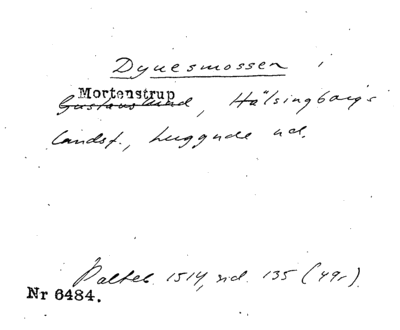 Dynesmossen i
Mortenstrup
Gustavslund, Hälsingborgs
landsf., Luggude hd.
Palteb. 1514, sid. 135 (49r).
Nr 6484.